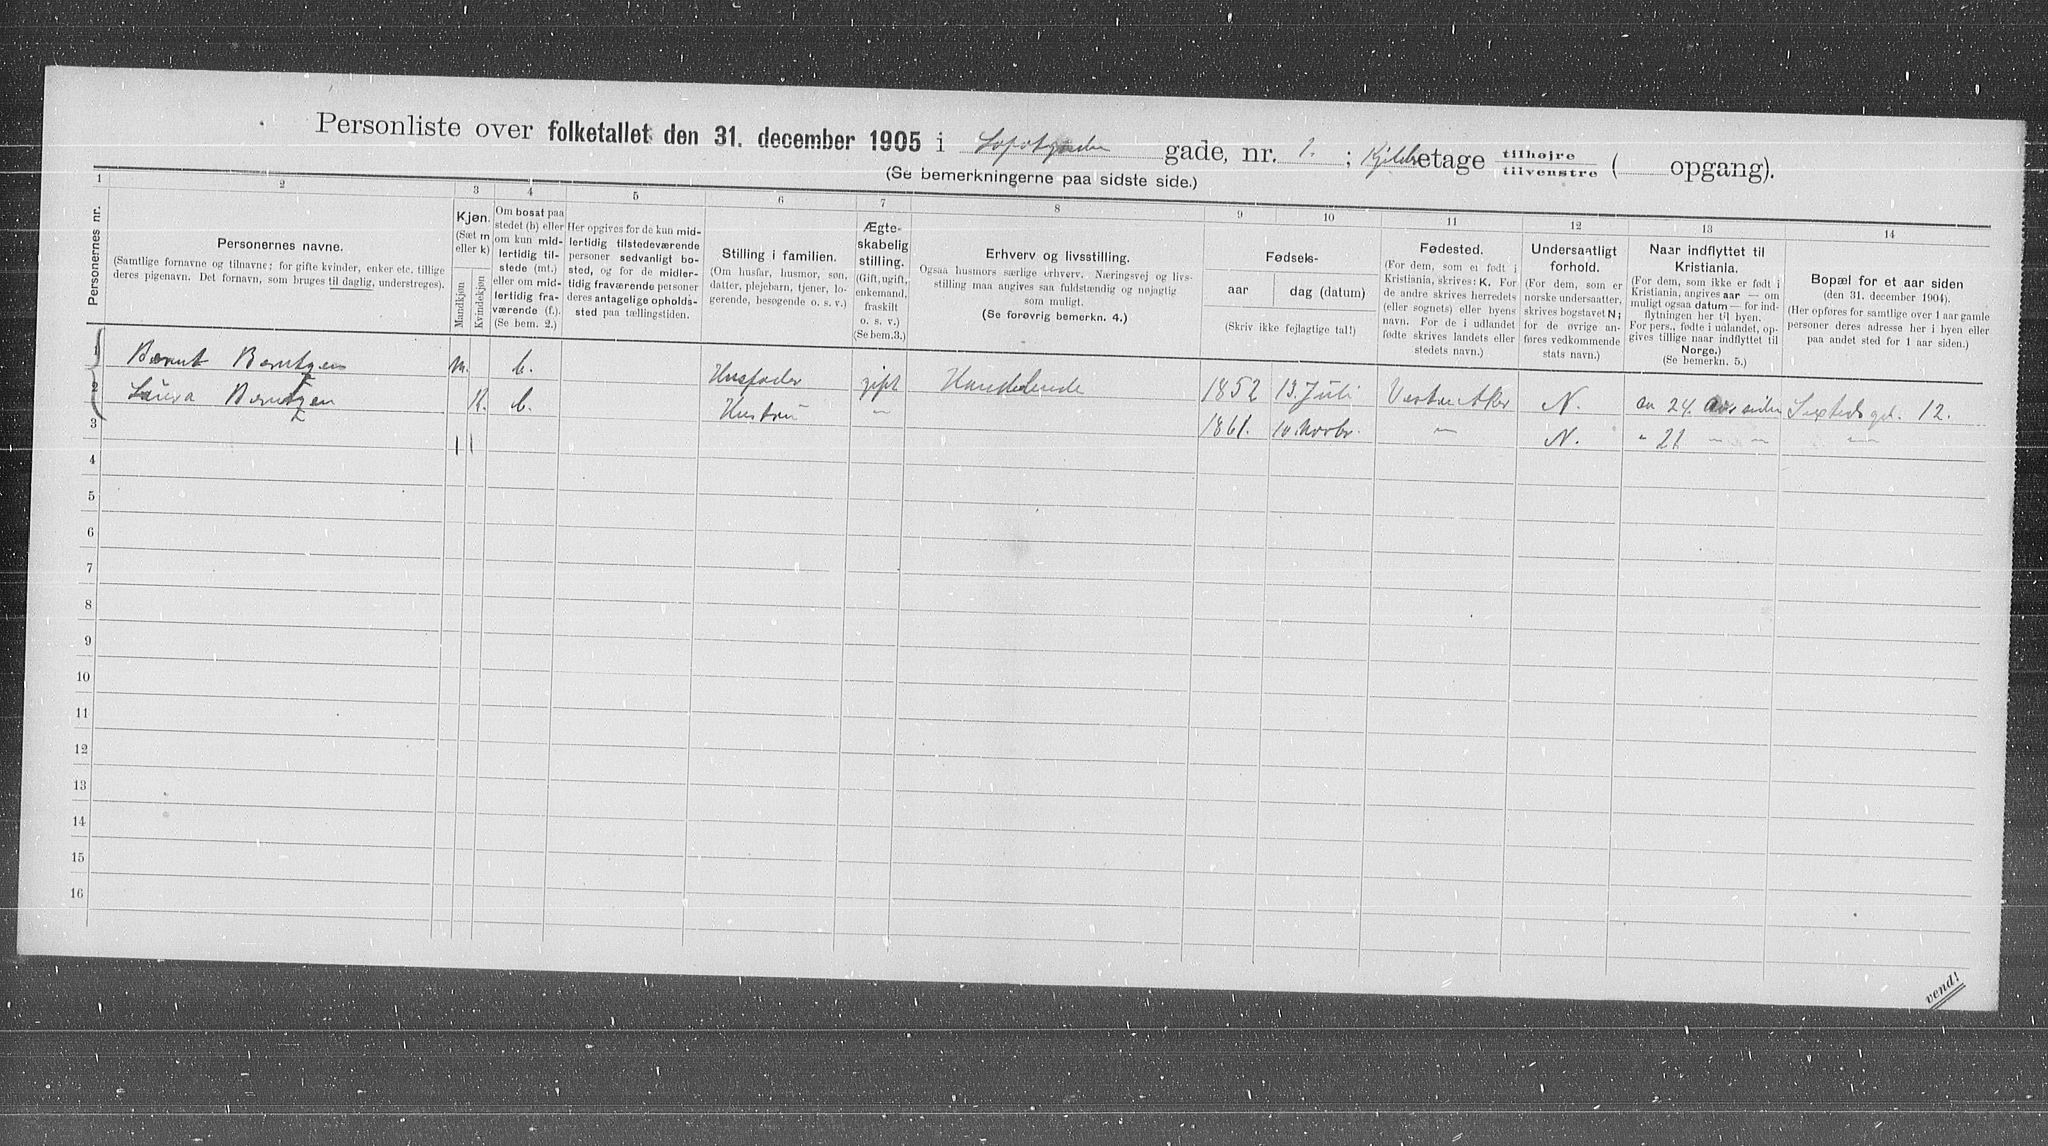 Personliste over folketallet den 31. december 1905 i Lofotgaden gade, nr. 1. ; Kjelder etage tilhøjre tilvenstre ( opgang).
(Se bemerkningerne paa sidste side.)
1 2 3 4 5 6 7 8 9 10 11 12 13 14
Personernes nr.
Personernes navne.
(Samtlige fornavne og tilnavne; for gifte kvinder, enker etc. tillige
deres pigenavn. Det fornavn, som bruges til daglig, understreges).
Kjøn.
(Sæt m
eller k)
Mandkjøn
Kvindekjøn
Om bosat paa
stedet (b) eller
om kun mid-
lertidig til-
stede (mt.)
eller om mid-
lertidig fra-
værende (f.).
(Se bem. 2.)
Her opgives for de kun mid-
lertidig tilstedeværende
personer sedvanligt bo-
sted, og for de midler-
tidig fraværende personer
deres antagelige opholds-
sted paa tællingstiden.
Stilling i familien.
(Om husfar, husmor, søn,
datter, plejebarn, tjener, lo-
gerende, besøgende o. s. v.)
Ægte-
skabelig
stilling.
(Gift, ugift,
enkemand,
fraskilt
o. s. v.)
(Se bem.3.)
Erhverv og livsstilling.
Ogsaa husmors særlige erhverv. Næringsvej og livs-
stilling maa angives saa fuldstændig og nøjagtig
som muligt.
(Se forøvrig bemerkn. 4.)
Fødsels-
aar
dag (datum)
(Skriv ikke fejlagtige tal!)
Fødested.
(For dem, som ei født i
Kristiania, skrives: K. For
de andre skrives herredets
(eller sognets) eller byens
navn. For de i udlandet
fødte skrives landets eller
stedets navn.)
Undersaatligt
forhold.
(For dem, som er
norske undersaatter,
skrives bogstavet N;
for de øvrige an-
føres vedkommende
stats navn.)
Naar indflyttet til
Kristiania.
(For dem, som ikke er født i
Kristiania, angives aar — om
muligt ogsaa datum — for ind-
flytningen her til byen.
For pers., fødte i udlandet, op-
gives tillige naar indflyttet til
Norge.)
(Se bemerkn. 5.)
Bopæl for et aar siden
(den 31. december 1904).
(Her opføres for samtlige over 1 aar gamle
personer deres adresse her i byen eller
paa andet sted for 1 aar siden.)
1 Bernt Berntzen m. b. Husfader gift Handlende 1852 13. Juli Vestre Aker N. 24. aar siden Sextedsgd. 12.
2 Laura Berntzen K. b. Hustru " 1861. 10. Novbr. " N. " 21 " " "
3 | |
4
5
6
7
8
9
10
11
12
13
14
15
16
vend!